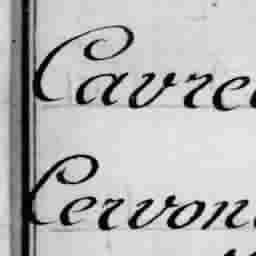 Cavre
Cervon